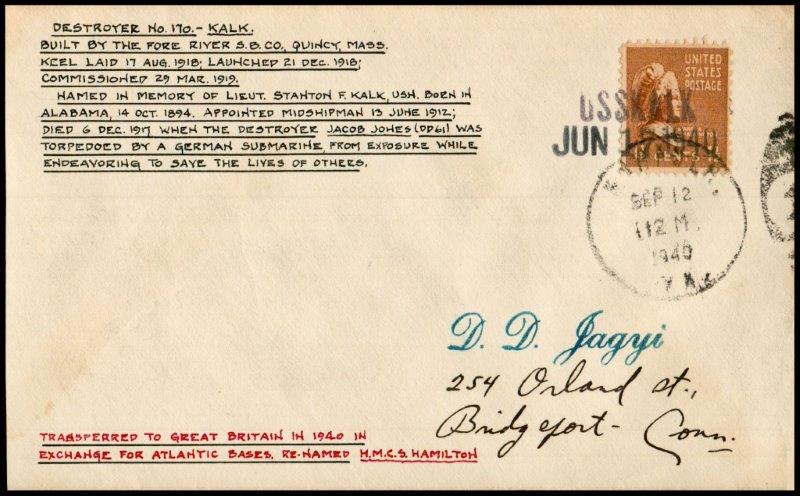 DESTROYER No. 170.- KALK.
BUILT BY THE FORE RIVER S.B. CO., QUINCY, MASS.
KEEL LAID 17 AUG. 1918; LAUNCHED 21 DEC. 1918;
COMMISSIONED 29 MAR. 1919.
NAMED IN MEMORY OF LIEUT. STANTON F. KALK, USN. BORN IN
ALABAMA, 14 OCT. 1894. APPOINTED MIDSHIPMAN 13 JUNE 1912;
DIED 6 DEC. 1917 WHEN THE DESTROYER JACOB JONES (DD61) WAS
TORPEDOED BY A GERMAN SUBMARINE, FROM EXPOSURE WHILE
ENDEAVORING TO SAVE THE LIVES OF OTHERS.
UNITED
STATES
POSTAGE
USS KALK
JUN 17 1940
CENTS
SEP 12
12 M.
1940
D. D. Jagyi
254 Orland st.,
Bridgeport - Conn.
TRANSFERRED TO GREAT BRITAIN IN 1940 IN
EXCHANGE FOR ATLANTIC BASES. RE-NAMED H.M.C.S. HAMILTON